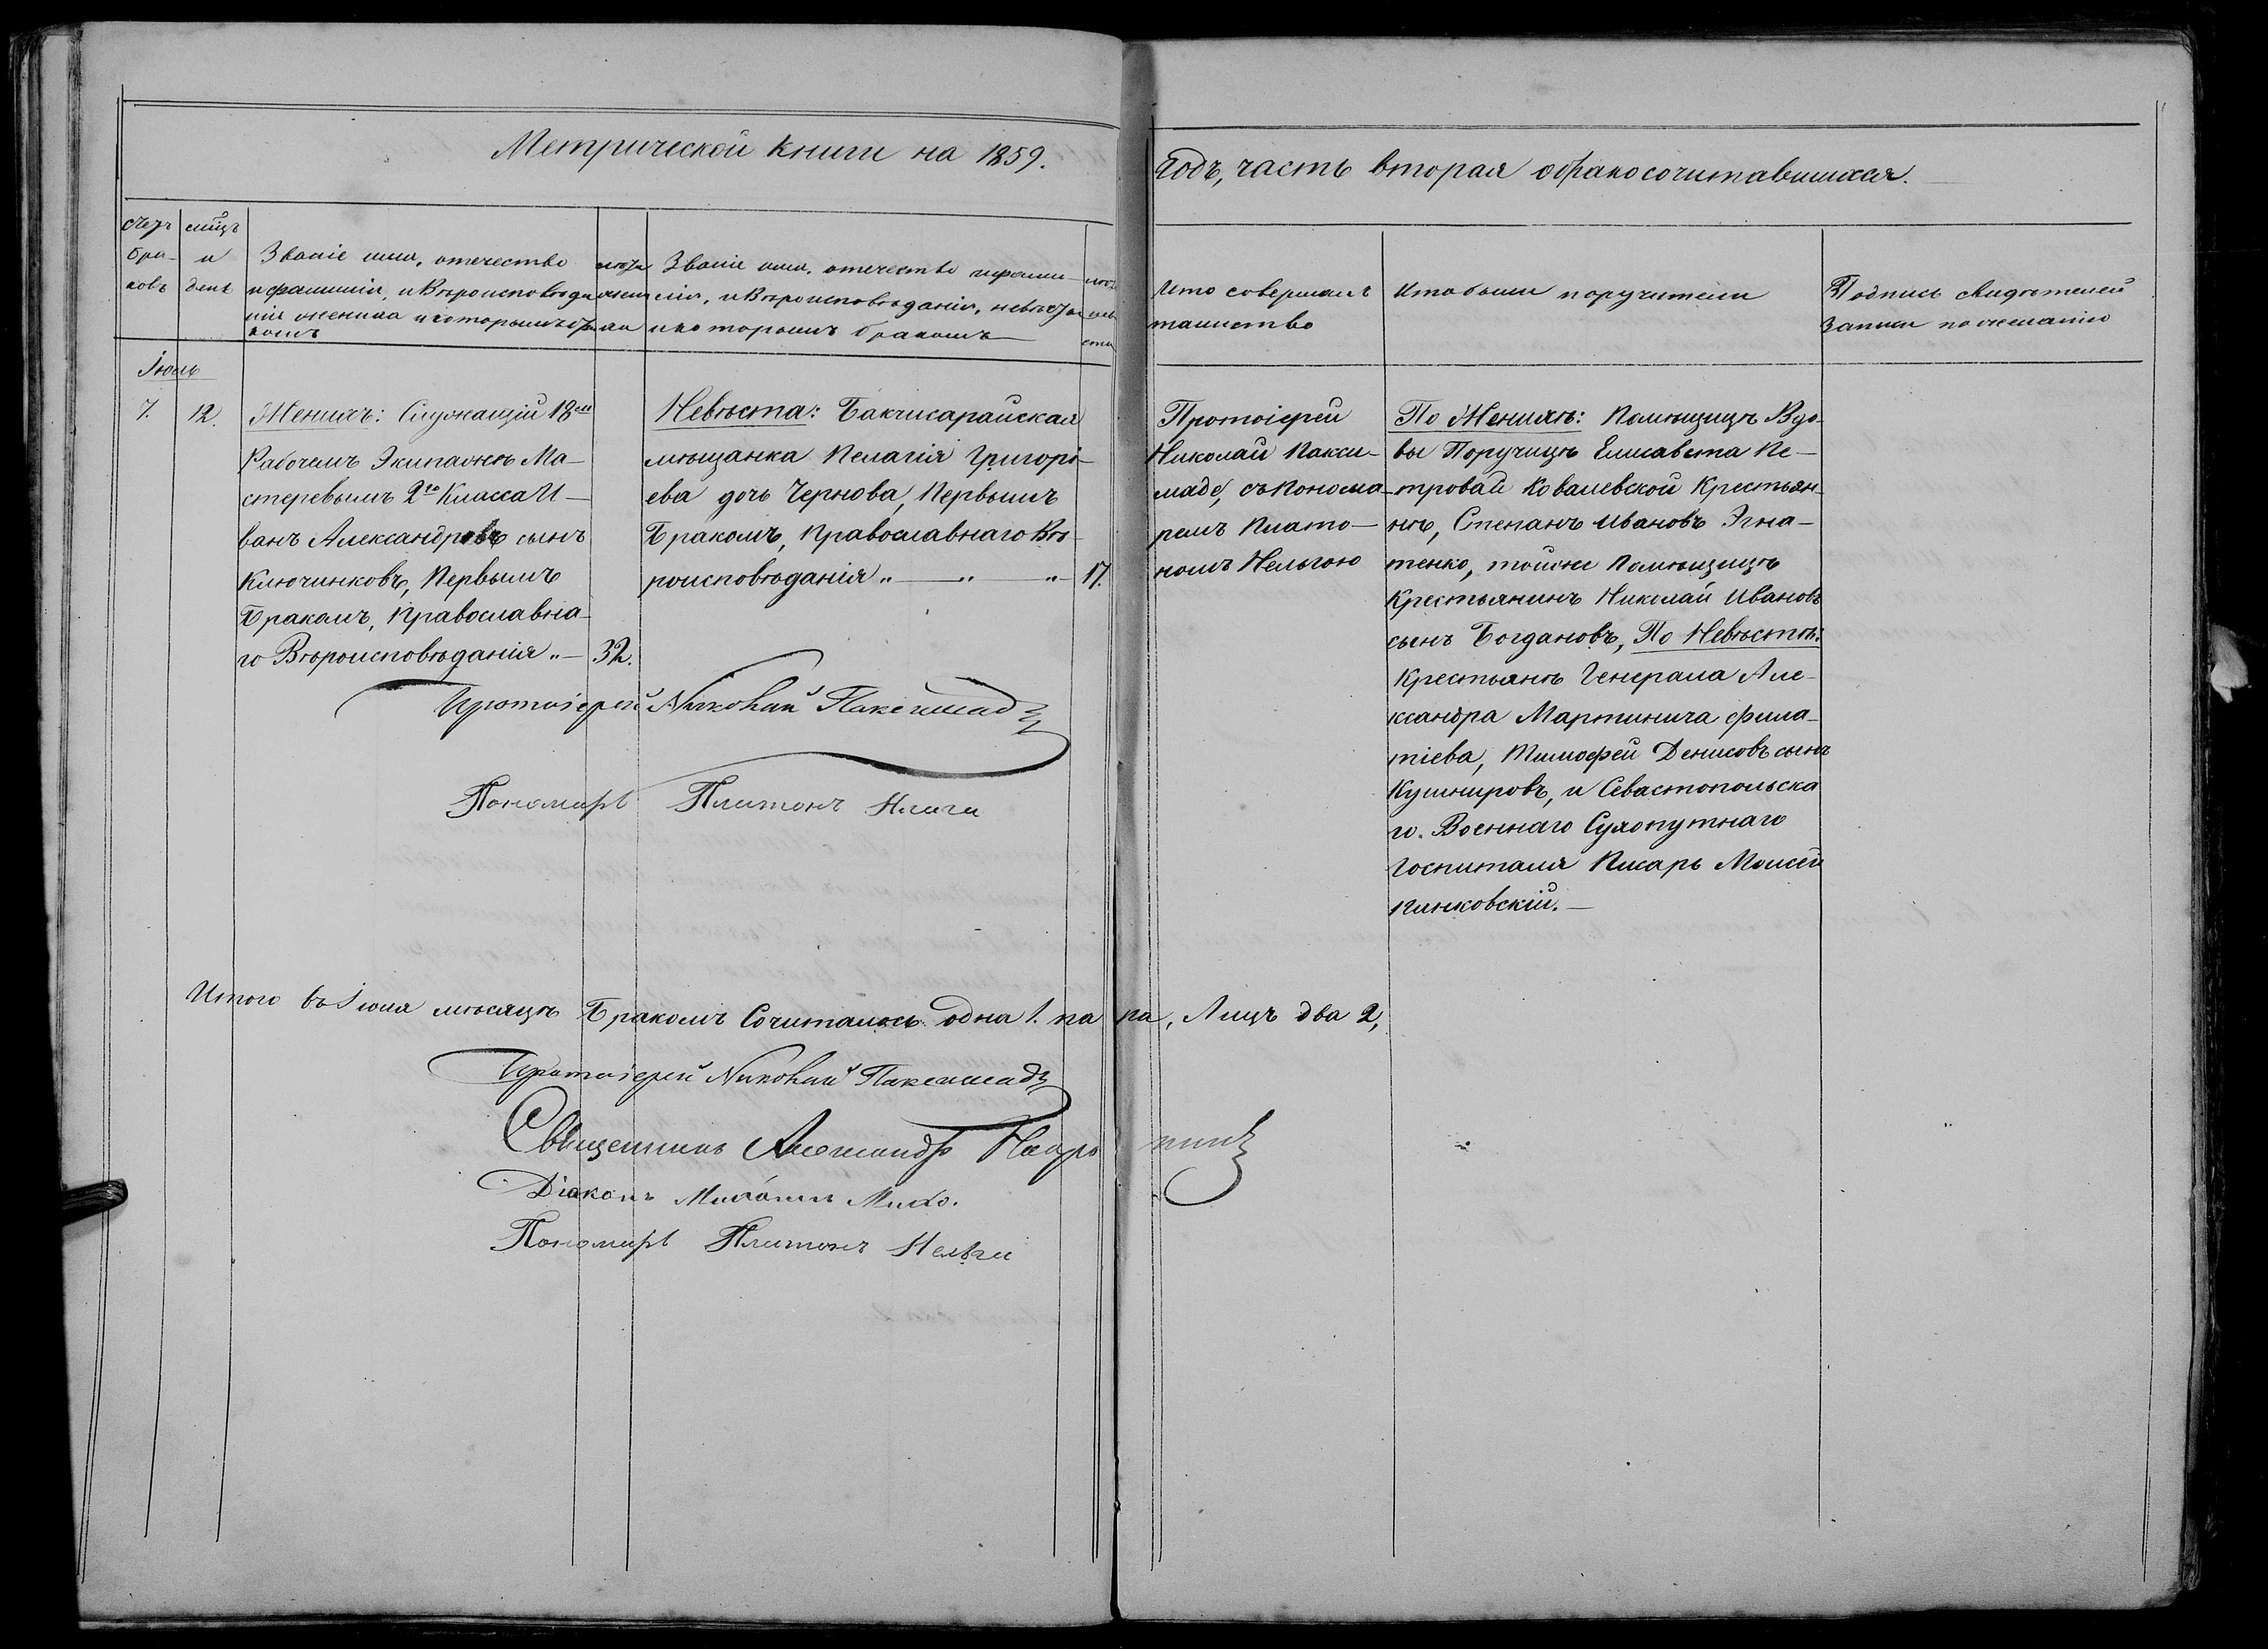 Метрической книги на 1859.
Годъ, часть вторая о бракосочитавшихся.
Счетъ браковъ
мѣцъ и день
Званіе имя, отечество
и фамилія, и Вѣроисповѣда
ніе жениха и которымъ бра
комъ
лѣта жениха
Званіе имя, отечество и фами-
лія, и Вѣроисповѣданія, невѣсты
и которымъ бракомъ
лѣта невѣсты
Кто совершалъ
таинство
Кто были поручители
Подпись свидѣтелей
записи по желанію
Іюль
7.
12.
Женихъ: Служащій 18мъ
Рабочемъ Экипажѣ Ма-
стеревымъ 2го Класса И-
ванъ Александровъ сынъ
Ключниковъ, Первымъ
Бракомъ, Православна-
го Вѣроисповѣданія „ — 32.
Невѣста: Бакчисарайская
мѣщанка Пелагія Григорі-
ева дочь Чернова, Первымъ
Бракомъ, Православнаго Вѣ-
роисповѣданія „ — „ — „ — 17.
Протоіерей
Николай Пакси-
маде, съ Понома-
ремъ Плато-
номъ Нельгою
По Женихѣ: Помѣщицъ Вдо-
вы Поручицѣ Елисавета Пе-
тровай Ковалевской Крестьян-
нѣ, Степанъ Ивановъ Игна-
тенко, тойже Помѣщицѣ
Крестьянинъ Николай Ивановъ
сынъ Богдановъ, По Невѣстѣ:
Крестьянѣ Генерала Але-
ксандра Мартинича Фила-
тіева, Тимофей Денисовъ сынъ
Кушнировъ, и Севастопольска
го. Военнаго Сухопутнаго
госпиталя Писарь Моисей
Глинковскій. —
Протоіерей Николай Паксимад
Пономарь Платонъ Нелга
Итого въ Іюля мѣсяцѣ Бракомъ Сочиталось одна 1. па ра, Лицъ два 2,
Протоіерей Николай Паксимад
Священникъ Александръ
Діаконъ
Пономарь Платонъ Нельга